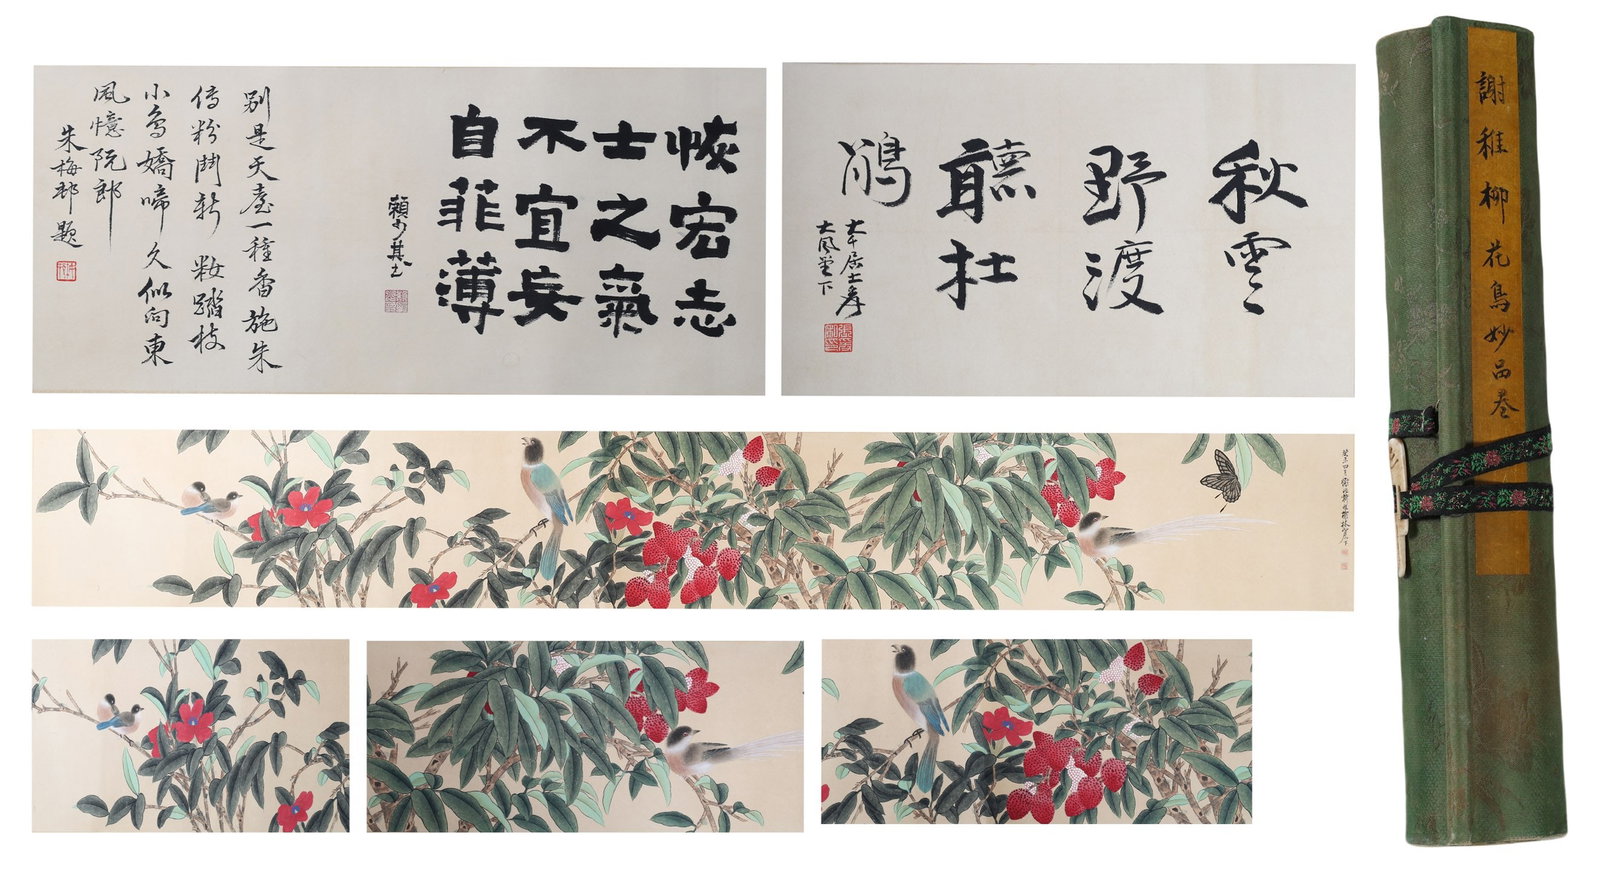 秋雲
野渡
聽杜
鵑
大千居士爰
大風堂下
恢宏志
士之氣
不宜妄
自菲薄
賴少其書
別是天臺一種香施朱
傅粉鬥新籹踏枝
小鳥嬌啼久似向東
風憶阮郎
朱梅邨題
謝稚柳花鳥妙品卷